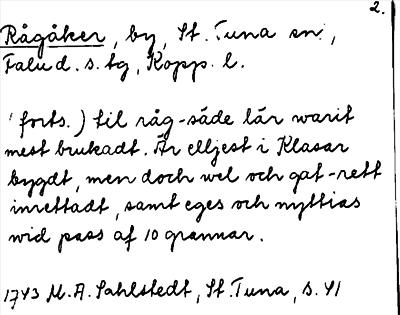 2.
Rågåker, by, St. Tuna sn,
Falu d. s. tg, Kopp. l.
(forts.) til råg-säde lär warit
mest brukadt. Är elljest i Klasar
bygdt, men doch wel och gat-rett
inrettadt, samt eges och nyttias
wid pass af 10 grannar.
1743 M.A. Sahlstedt, St. Tuna, s. 41